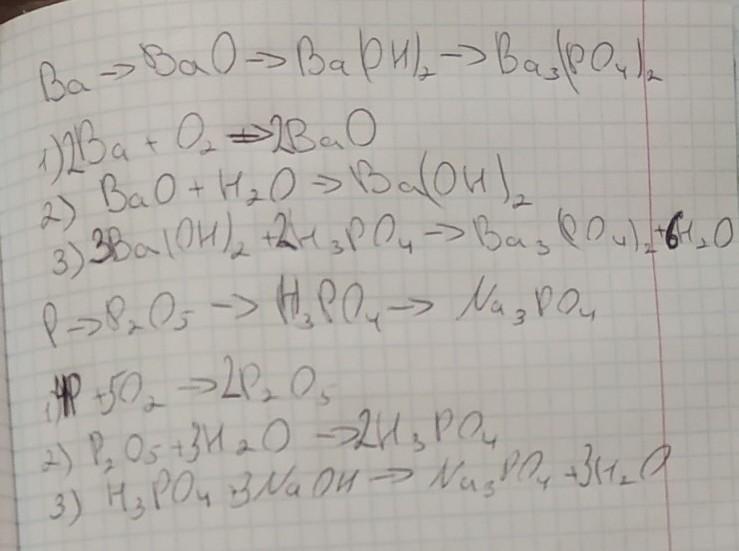 Ba → BaO → Ba(OH)₂ → Ba₃(PO₄)₂
1) 2Ba + O₂ → 2BaO
2) BaO + H₂O → Ba(OH)₂
3) 3Ba(OH)₂ + 2H₃PO₄ → Ba₃(PO₄)₂ + 6H₂O
P → P₂O₅ → H₃PO₄ → Na₃PO₄
1) 4P + 5O₂ → 2P₂O₅
2) P₂O₅ + 3H₂O → 2H₃PO₄
3) H₃PO₄ + 3NaOH → Na₃PO₄ + 3H₂O